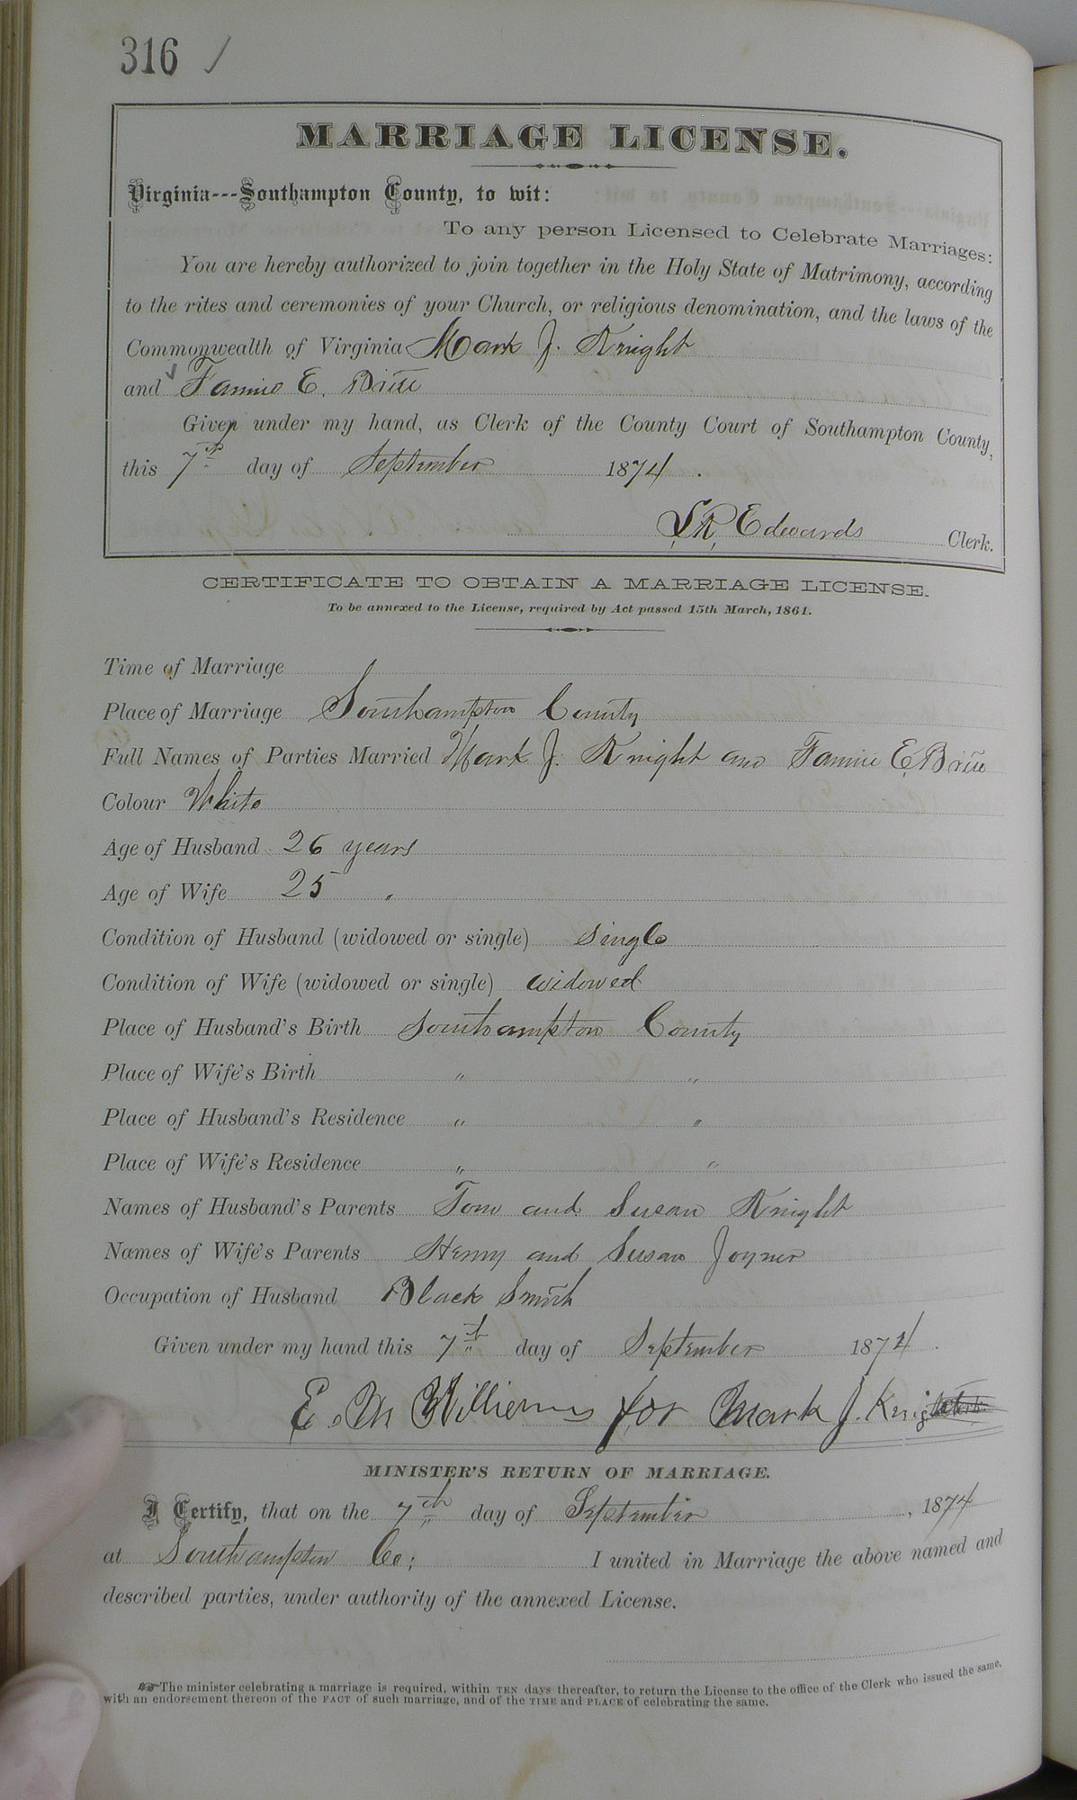 316 /
MARRIAGE LICENSE.
Virginia---Southampton County, to wit:
To any person Licensed to Celebrate Marriages:
You are hereby authorized to join together in the Holy State of Matrimony, according
to the rites and ceremonies of your Church, or religious denomination, and the laws of the
Commonwealth of Virginia Mark J. Knight
and Fannie E. Britt
Given under my hand, as Clerk of the County Court of Southampton County,
this 7th day of September 1874.
L. R. Edwards Clerk.
CERTIFICATE TO OBTAIN A MARRIAGE LICENSE.
To be annexed to the License, required by Act passed 15th March, 1861.
Time of Marriage
Place of Marriage Southampton County
Full Names of Parties Married Mark J. Knight and Fannie E. Britt
Colour White
Age of Husband 26 years
Age of Wife 25 "
Condition of Husband (widowed or single) single
Condition of Wife (widowed or single) widowed
Place of Husband's Birth Southampton County
Place of Wife's Birth " "
Place of Husband's Residence " "
Place of Wife's Residence " "
Names of Husband's Parents Tom and Susan Knight
Names of Wife's Parents Henry and Susan Joyner
Occupation of Husband Black Smith
Given under my hand this 7th day of September 1874.
E. M. Williams for Mark J. Knight
MINISTER'S RETURN OF MARRIAGE.
I Certify, that on the 7th day of September, 1874
at Southampton Co; I united in Marriage the above named and
described parties, under authority of the annexed License.
The minister celebrating a marriage is required, within TEN days thereafter, to return the License to the office of the Clerk who issued the same,
with an endorsement thereon of the FACT of such marriage, and of the TIME and PLACE of celebrating the same.